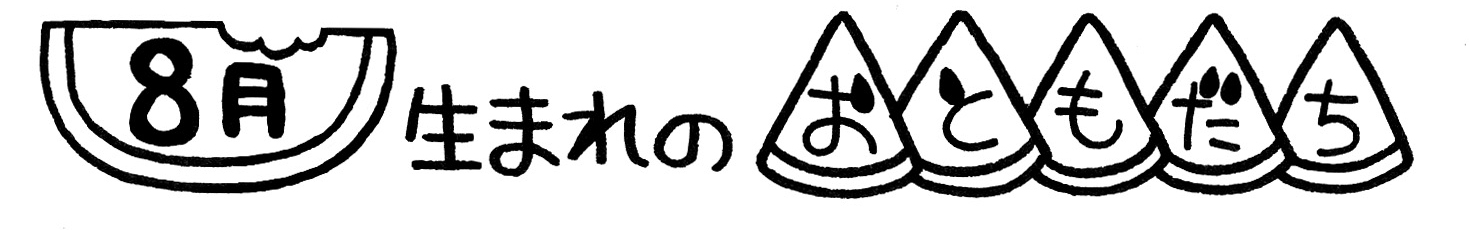 8月生まれのおともだち